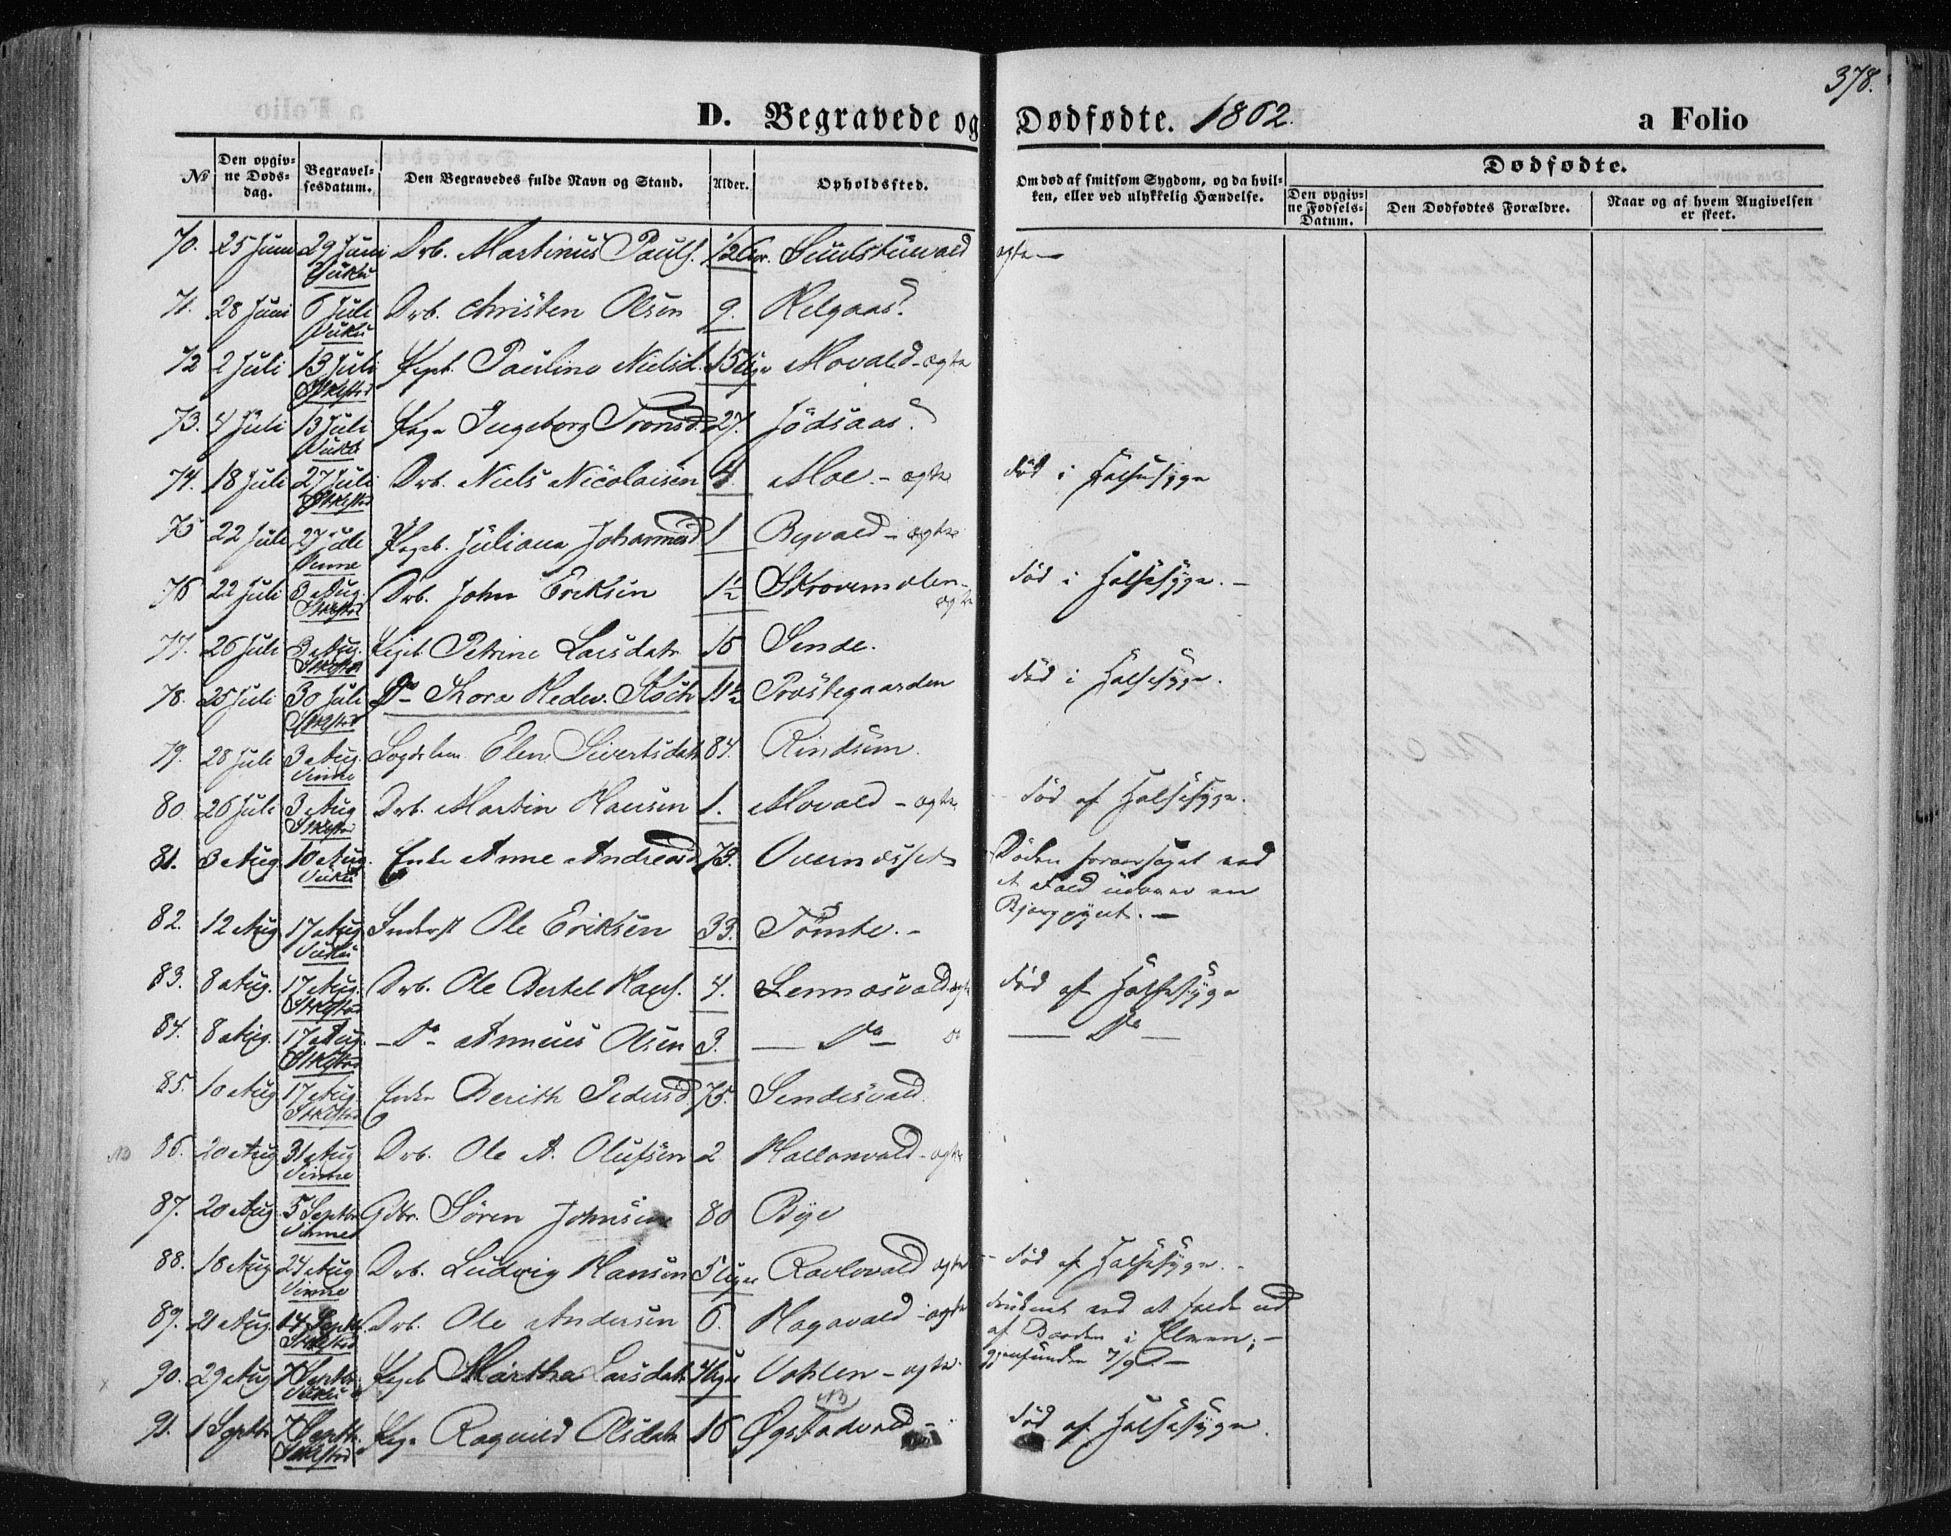 378.
D. Begravede og Dødfødte. 1862. a Folio
No Den opgivne Dødsdag. Begravelsesdatum. Den Begravedes fulde Navn og Stand. Alder. Opholdssted. Om død af smitsom Sygdom, og da hvilken, eller ved ulykkelig Hændelse. Dødfødte.
Den opgivne Fødsels-Datum. Den Dødfødtes Forældre. Naar og af hvem Angivelsen er skeet.
70. 25 Juni 29 Juni Vuku Drb. Martinus Pauls. ægte
71. 28 Juni 6 Juli Vuku Drb. Christen Olsen 9. Helgaas
72 2 Juli 13 Juli Stklstad Pigeb. Pauline Nielsd. 15 Uger Movald - ægte
73. 4 Juli 13 Juli Vuku Pige Ingeborg Tronsd. 27. Jødsaas
74. 18 Juli 27 Juli Stklstad Drb. Niels Nicolaisen 4. Moe. - ægte død i Halsesyge
75 22 Juli 27 Juli Vinne Pigeb. Juliana Johannesd. 1 Byvald - ægte
76 22 Juli 3 Aug. Stklstad Drb. John Eriksen 1½ Skrovemolen - ægte død i Halsesyge. -
77. 26 Juli 3 Aug. Stklstad Pigeb. Petrine Larsdatr 15 Sende.
78. 25 Juli 30 Juli Stklstad Do Thora Hedev. 11½ Provstegaarden død i Halsesyge.
79. 28 Juli 3 Aug. Vinne Elen Sivertsdatr 84. Rindsum.
80. 26 Juli 3 Aug Stklstad Drb. Martin Hansen 1. Movald - ægte død af Halsesyge.
81. 3 Aug. 10 Aug. Vuku Enke Anne Andreasd. 73. Overnesset Døden foraarsaget ved
et Fald udover en
Bjergpynt. -
82. 12 Aug 17 Aug. Vuku Inderst Ole Eriksen 33. Tømte. -
83. 8 Aug. 17 Aug. Stklstad Drb. Ole Bertel Hans. 4. Lennesvald ægte død af Halsesyge
84. 8 Aug. 17 Aug. Stklstad - Do Anneus Olsen 3. - Do - - Do -
85. 10 Aug 17 Aug. Stklstad Enke Berith Pedersd. 75. Sendesvald.
NB 86. 20 Aug 31 Aug Vinne Drb. Ole A. Olufsen 2 Hallanvald - ægte
87. 20 Aug. 5 Septbr Vinne Gdbr. Søren Johnsen 80 Bye
88. 18 Aug. 24 Aug Vinne Drb. Ludvig Hansen 5 Uger ægte - død af Halsesyge. -
89. 21 Aug. 14 Septbr Stklstad Drb. Ole Andersen 6. Hagavald - ægte druknet ved at falde ud
af Baaden i Elven; -
gjenfunden 7/9 -
90. 29 Aug 7 Septbr Vuku Pigeb Martha Larsdatr 4 Uger Vohlen - ægte
NB
91. 1 Septbr 7 Septbr. Stklstad Pige Ragnild Olsdatr 16 Øgstadvald - død af Halsesyge.